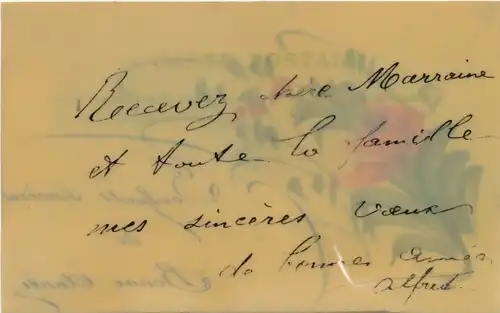 Recevez chère Marraine
et toute la famille
mes sincères vœux
de bonne année
Alfred